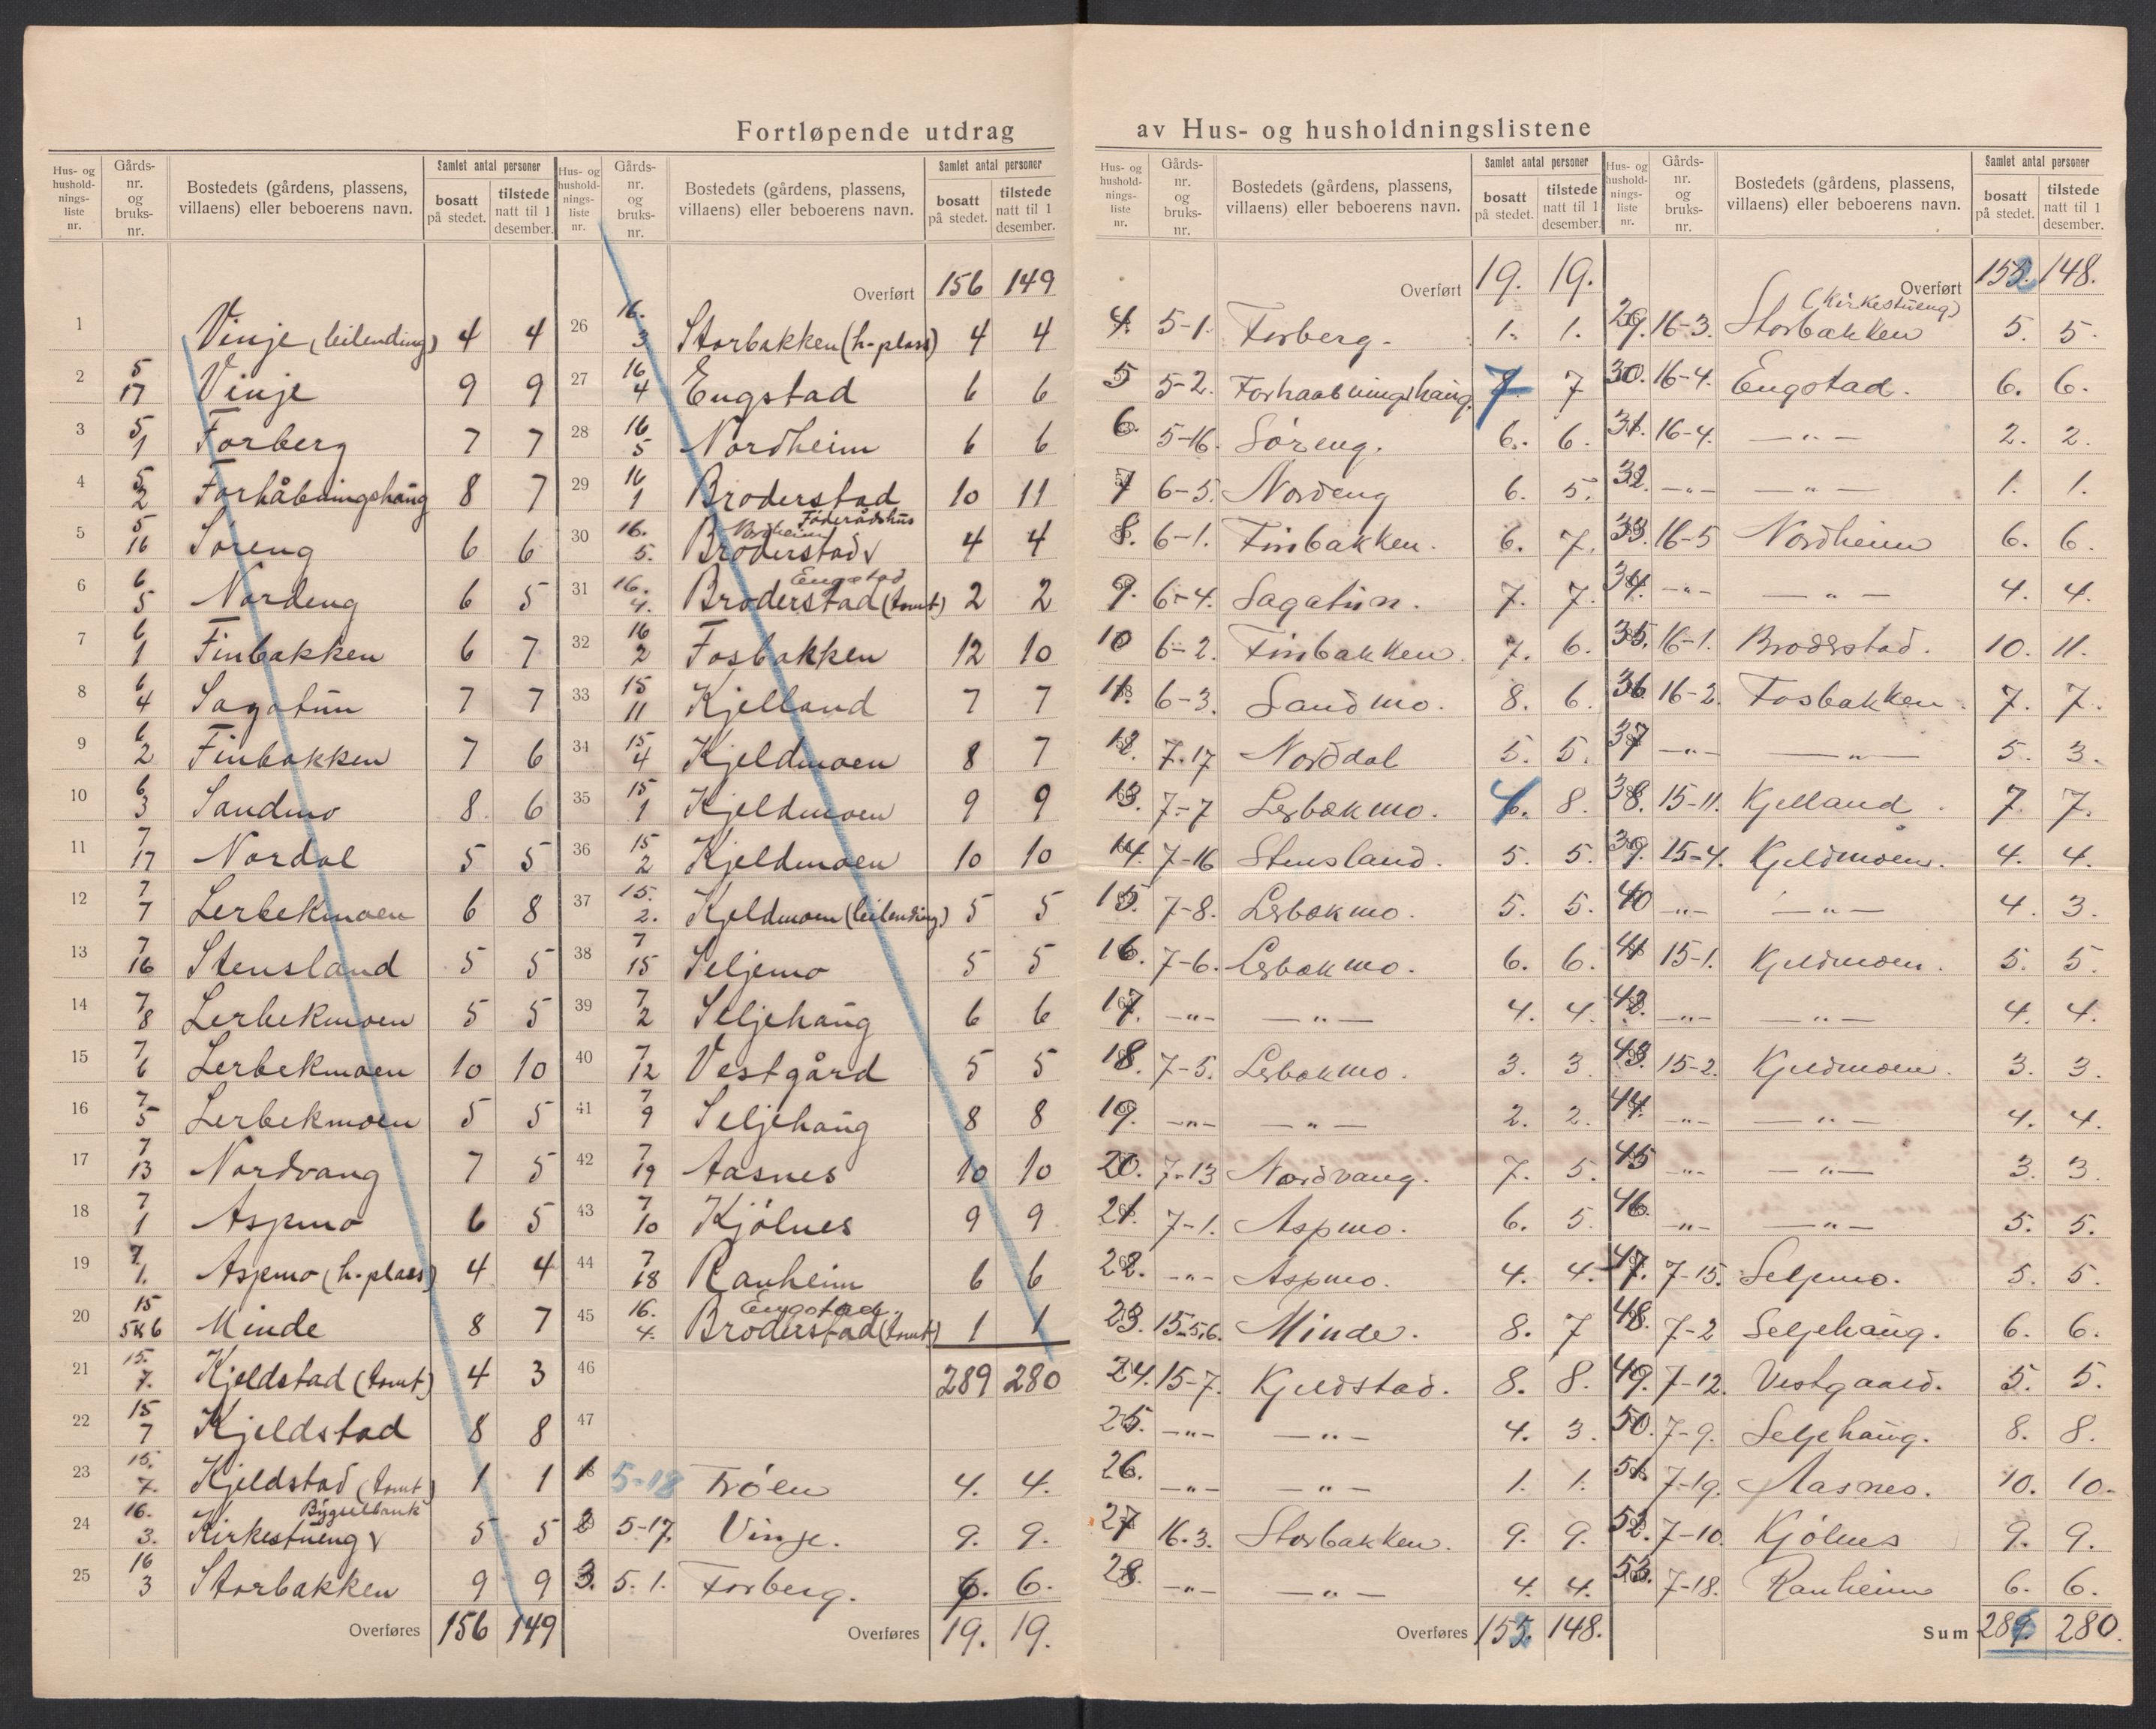 Fortløpende utdrag av Hus- og husholdningslistene
Hus- og hushold-nings-liste nr. | Gårds-nr. og bruks-nr. | Bostedets (gårdens, plassens, villaens) eller beboerens navn. | Samlet antal personer | bosatt på stedet. | tilstede natt til 1 desember.
1 Vinje (leilending) 4 4
2 5/17 Vinje 9 9
3 5/1 Forberg 7 7
4 5/2 Forhåbningshaug 8 7
5 5/16 Søreng 6 6
6 6/5 Nordeng 6 5
7 6/1 Finbakken 6 7
8 6/4 Sagatun 7 7
9 6/2 Finbakken 7 6
10 6/3 Sandmo 8 6
11 7/17 Nordal 5 5
12 7/7 Lerbekmoen 6 8
13 7/16 Stensland 5 5
14 7/8 Lerbekmoen 5 5
15 7/6 Lerbekmoen 10 10
16 7/5 Lerbekmoen 5 5
17 7/13 Nordvang 7 5
18 7/1 Aspmo 6 5
19 7/1. Aspmo (h-plass) 4 4
20 15/5&6 Minde 8 7
21 15./7. Kjeldstad (tomt) 4 3
22 15/7 Kjeldstad 8 8
23 15./7. Kjeldstad (tomt) 1 1
24 16./3. Kirkestueng v Bygselbruk 5 5
25 16/3 Storbakken 9 9
Overføres 156 149
Hus- og hushold-nings-liste nr. | Gårds-nr. og bruks-nr. | Bostedets (gårdens, plassens, villaens) eller beboerens navn. | Samlet antal personer | bosatt på stedet. | tilstede natt til 1 desember.
Overført 156 149
26 16./3 Storbakken (h-plass) 4 4
27 16/4 Engstad 6 6
28 16/5 Nordheim 6 6
29 16/1 Broderstad 10 11
30 16./5. Broderstad v Nordheim Föderådshus 4 4
31 16./4. Broderstad (tomt) Engstad 2 2
32 16/2 Fosbakken 12 10
33 15/11 Kjelland 7 7
34 15/4 Kjeldmoen 8 7
35 15/1 Kjeldmoen 9 9
36 15/2 Kjeldmoen 10 10
37 15./2. Kjeldmoen (leilending) 5 5
38 7/15 Seljemo 5 5
39 7/2 Seljehaug 6 6
40 7/12 Vestgård 5 5
41 7/9 Seljehaug 8 8
42 7/19 Aasnes 10 10
43 7/10 Kjölnes 9 9
44 7/18 Ranheim 6 6
45 16./4. Broderstad (tomt) Engstad. 1 1
46 289 280
47
1 5-18 Trøen 4. 4.
2 5-17. Vinje. 9. 9.
3. 5. 1. Forberg. 6. 6.
Overføres 19. 19.
Hus- og hushold-nings-liste nr. | Gårds-nr. og bruks-nr. | Bostedets (gårdens, plassens, villaens) eller beboerens navn. | Samlet antal personer | bosatt på stedet. | tilstede natt til 1 desember.
Overført 19. 19.
4. 5-1. Forberg. 1. 1.
5 5-2. Forhaabningshaug. 7 7
6. 5-16. Søreng. 6. 6.
7 6-5. Nordeng 6. 5.
8. 6-1. Finbakken. 6. 7.
9. 6-4. Sagatun. 7. 7.
10 6-2. Finbakken. 7. 6.
11. 6-3. Sandmo. 8. 6.
12. 7-17 Norddal 5. 5.
13. 7-7 Lerbækmo. 6. 8.
14. 7-16 Stensland. 5. 5.
15. 7-8. Lerbækmo. 5. 5.
16. 7-6. Lerbækmo. 6. 6.
17. -"- -"- 4. 4.
18. 7-5. Lerbækmo. 3. 3.
19. -"- -"- 2. 2.
20. 7-13 Nordvang. 7. 5.
21. 7-1. Aspmo. 6. 5.
22. -"- Aspmo. 4. 4.
23. 15-5,6. Minde. 8. 7
24. 15-7. Kjeldstad. 8. 8.
25. -"- -"- 4. 3.
26. -"- -"- 1. 1.
27 16-3. Storbakken. 9. 9.
28. -"- -"- 4. 4.
Overføres 152 148.
Hus- og hushold-nings-liste nr. | Gårds-nr. og bruks-nr. | Bostedets (gårdens, plassens, villaens) eller beboerens navn. | Samlet antal personer | bosatt på stedet. | tilstede natt til 1 desember.
Overført 152 148.
29. 16-3. Storbakken (Kirkestueng) 5. 5.
30. 16-4. Engstad. 6. 6.
31. 16-4. -"- 2. 2.
32. -"- -"- 1. 1.
33. 16-5 Nordheim 6. 6.
34. -"- -"- 4. 4.
35. 16-1. Broderstad. 10. 11.
36 16-2. Fosbakken. 7. 7.
37 -"- -"- 5. 3.
38. 15-11. Kjelland. 7. 7.
39. 15-4. Kjeldmoen. 4. 4.
40 -"- -"- 4. 3.
41 15-1. Kjeldmoen. 5. 5.
42. -"- -"- 4. 4.
43. 15-2. Kjeldmoen. 3. 3.
44. -"- -"- 4. 4.
45 -"- -"- 3. 3.
46. -"- -"- 5. 5.
47. 7-15. Seljemo. 5. 5.
48. 7-2 Seljehaug. 6. 6.
49. 7-12. Vestgaard. 5. 5.
50. 7-9. Seljehaug. 8. 8.
51. 7-19. Aasnes. 10. 10.
52. 7-10. Kjölnes 9. 9.
53. 7-18. Ranheim 6. 6.
Sum 286 280.